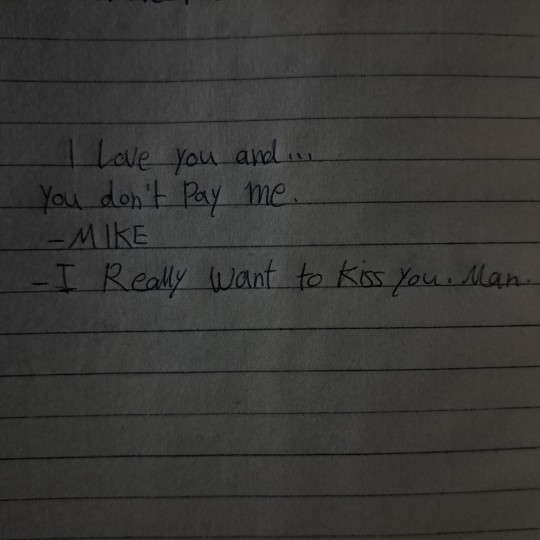 I Love you and...
You don't Pay me.
-MIKE
-I Really Want to Kiss You. Man.